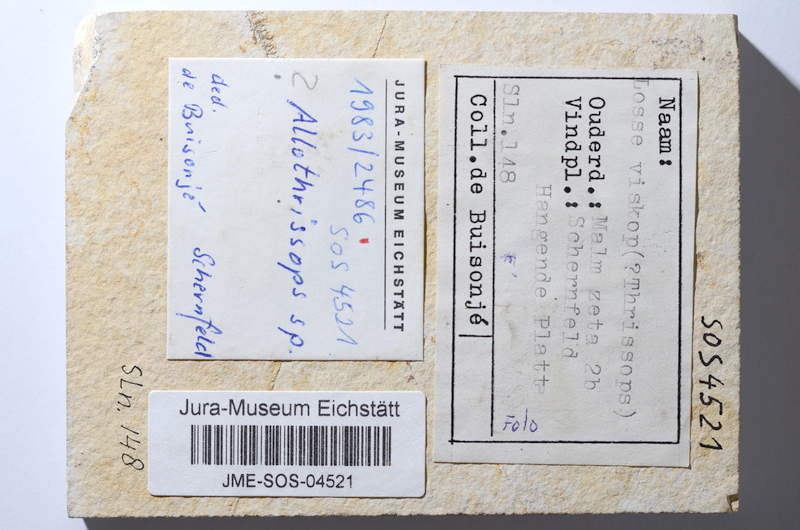 JURA-MUSEUM EICHSTÄTT
1983/2486
SOS 4521
? Allothrissops sp.
ded.
de Buisonjé Schernfeld
Naam:
Losse viskop(?Thrissops)
Ouderd.: Malm zeta 2b
Vindpl.: Schernfeld
Hangende Platt
Sln.148
Foto
Coll.de Buisonjé
SOS4521
Sln. 148
Jura-Museum Eichstätt
JME-SOS-04521